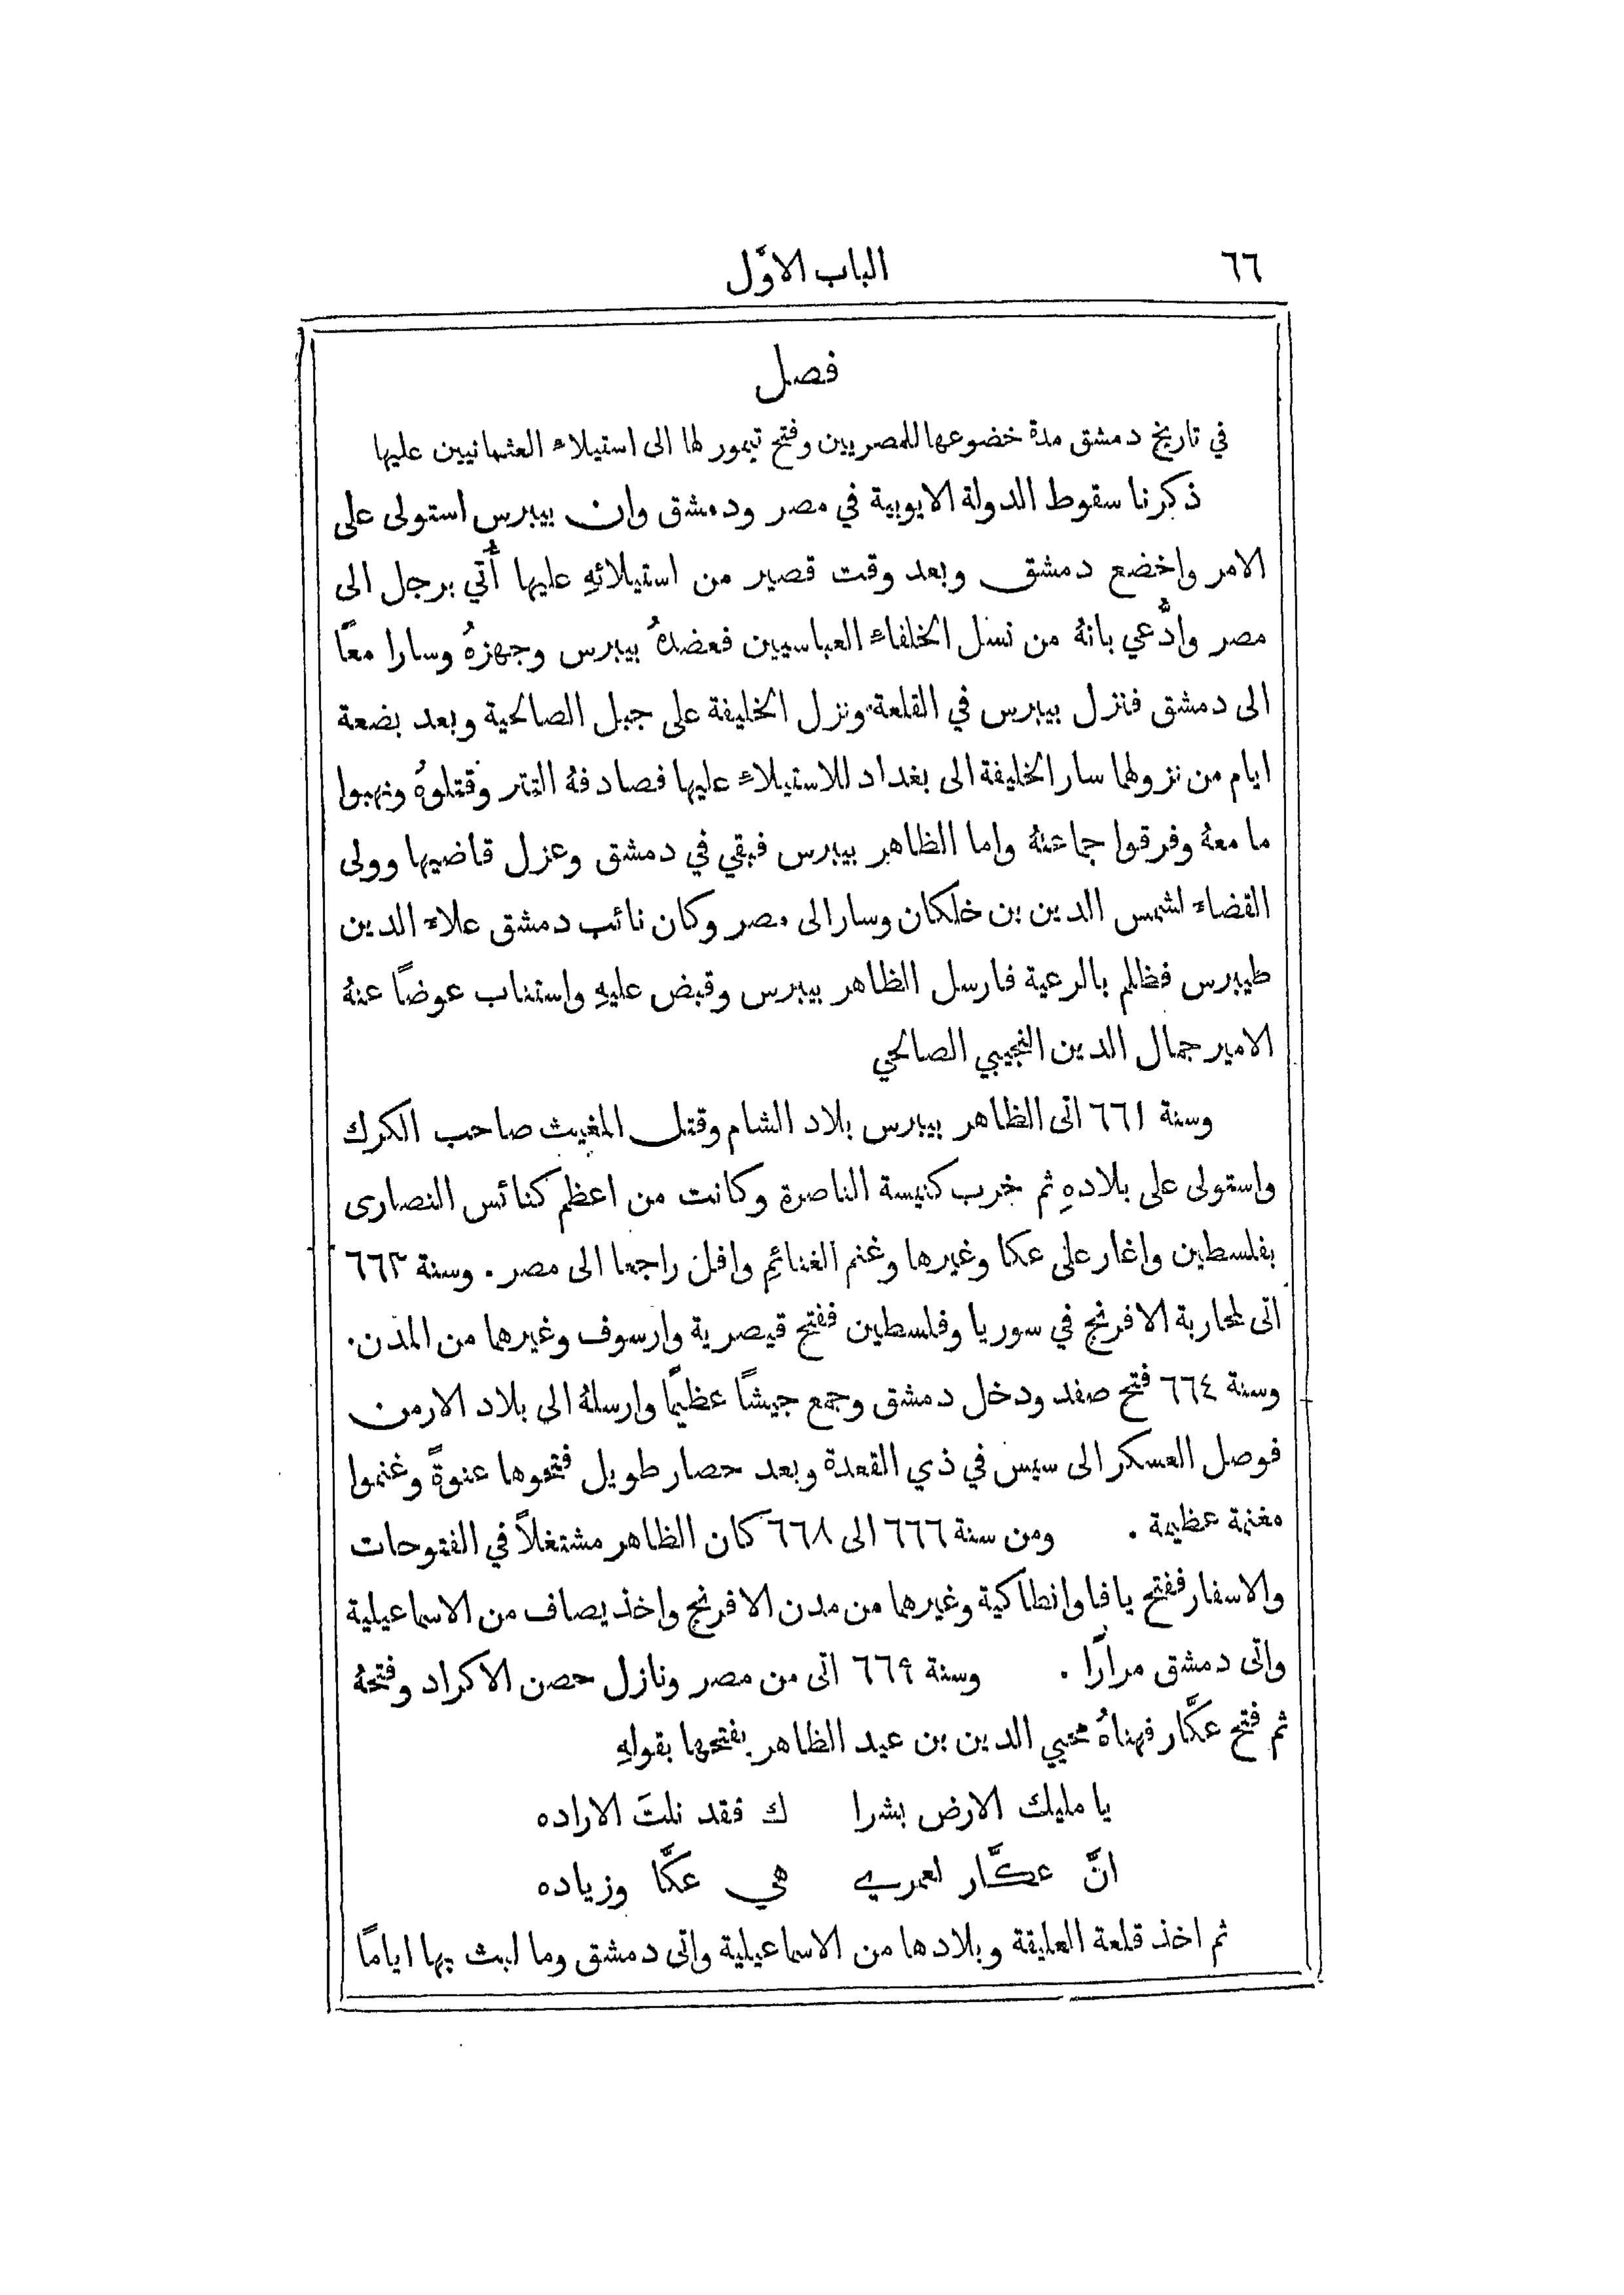 ٦٦
الباب الاوّل
فصل
في تاريخ دمشق مدة خضوعها للمصريين وفتح تيمور لها الى استيلاء العثمانيين عليها
ذكرنا سقوط الدولة الايوبية في مصر ودمشق وان بيبرس استولى على
الامر واخضع دمشق وبعد وقت قصير من استيلائهِ عليها أُتي برجل الى
مصر وادُّعي بانهُ من نسل الخلفاء العباسيين فعضدهُ بيبرس وجهزهُ وسارا معًا
الى دمشق فنزل بيبرس في القلعة ونزل الخليفة على جبل الصالحية وبعد بضعة
ايام من نزولهما سار الخليفة الى بغداد للاستيلاء عليها فصادفهُ التتر وقتلوهُ ونهبوا
ما معهُ وفرقوا جماعتهُ واما الظاهر بيبرس فبقي في دمشق وعزل قاضيها وولى
القضاء لشمس الدين بن خلكان وسار الى مصر وكان نائب دمشق علاء الدين
طيبرس فظلم بالرعية فارسل الظاهر بيبرس وقبض عليهِ واستناب عوضًا عنهُ
الامير جمال الدين النجيبي الصالحي
وسنة ٦٦١ اتى الظاهر بيبرس بلاد الشام وقتل المغيث صاحب الكرك
واستولى على بلادهِ ثم خرب كنيسة الناصرة وكانت من اعظم كنائس النصارى
بفلسطين واغار على عكا وغيرها وغنم الغنائم وافل راجعا الى مصر. وسنة ٦٦٣
اتى لمحاربة الافرنج في سوريا وفلسطين ففتح قيصرية وارسوف وغيرهما من المدن.
وسنة ٦٦٤ فتح صفد ودخل دمشق وجمع جيشًا عظيمًا وارسلهُ الى بلاد الارمن
فوصل العسكر الى سيس في ذي القعدة وبعد حصار طويل فتحوها عنوةً وغنموا
مغنمة عظيمة. ومن سنة ٦٦٦ الى ٦٦٨ كان الظاهر مشتغلاً في الفتوحات
والاسفار ففتح يافا وانطاكية وغيرهما من مدن الافرنج واخذ يصاف من الاسماعيلية
واتى دمشق مرارًا. وسنة ٦٦٩ اتى من مصر ونازل حصن الاكراد وفتحهُ
ثم فتح عكَّار فهناهُ محيي الدين بن عبد الظاهر بفتحها بقولهِ
يا مليك الارض بشرا ك فقد نلتَ الاراده
انَّ عكَّار لعمري هي عكَّا وزياده
ثم اخذ قلعة العليقة وبلادها من الاسماعيلية واتى دمشق وما لبث بها ايامًا